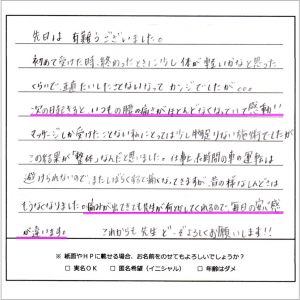 先日は有難うございました。
初めて受けた時、終わったときに少し体が軽いかなと思った
くらいで、正直たいしたことないなってカンジでしたが。。。
次の日起きると、いつもの腰の痛さがほとんどなくなっていて感動!!
マッサージしか受けたことない私にとっては少し物足りない施術でしたが
この結果が「整体」なんだと思いました。仕事上、長時間の車の運転は
避けられないので、またしばらくすると痛くなってきますが、昔の様なしんどさは
もうなくなりました。痛みが出てきても先生が何とかしてくれるので毎日の安心感
が違います。 これからも先生どーぞよろしくお願いします!!
※ 紙面やHPに載せる場合、お名前をのせてもよろしいでしょうか?
□ 実名OK □ 匿名希望(イニシャル) □ 年齢はダメ